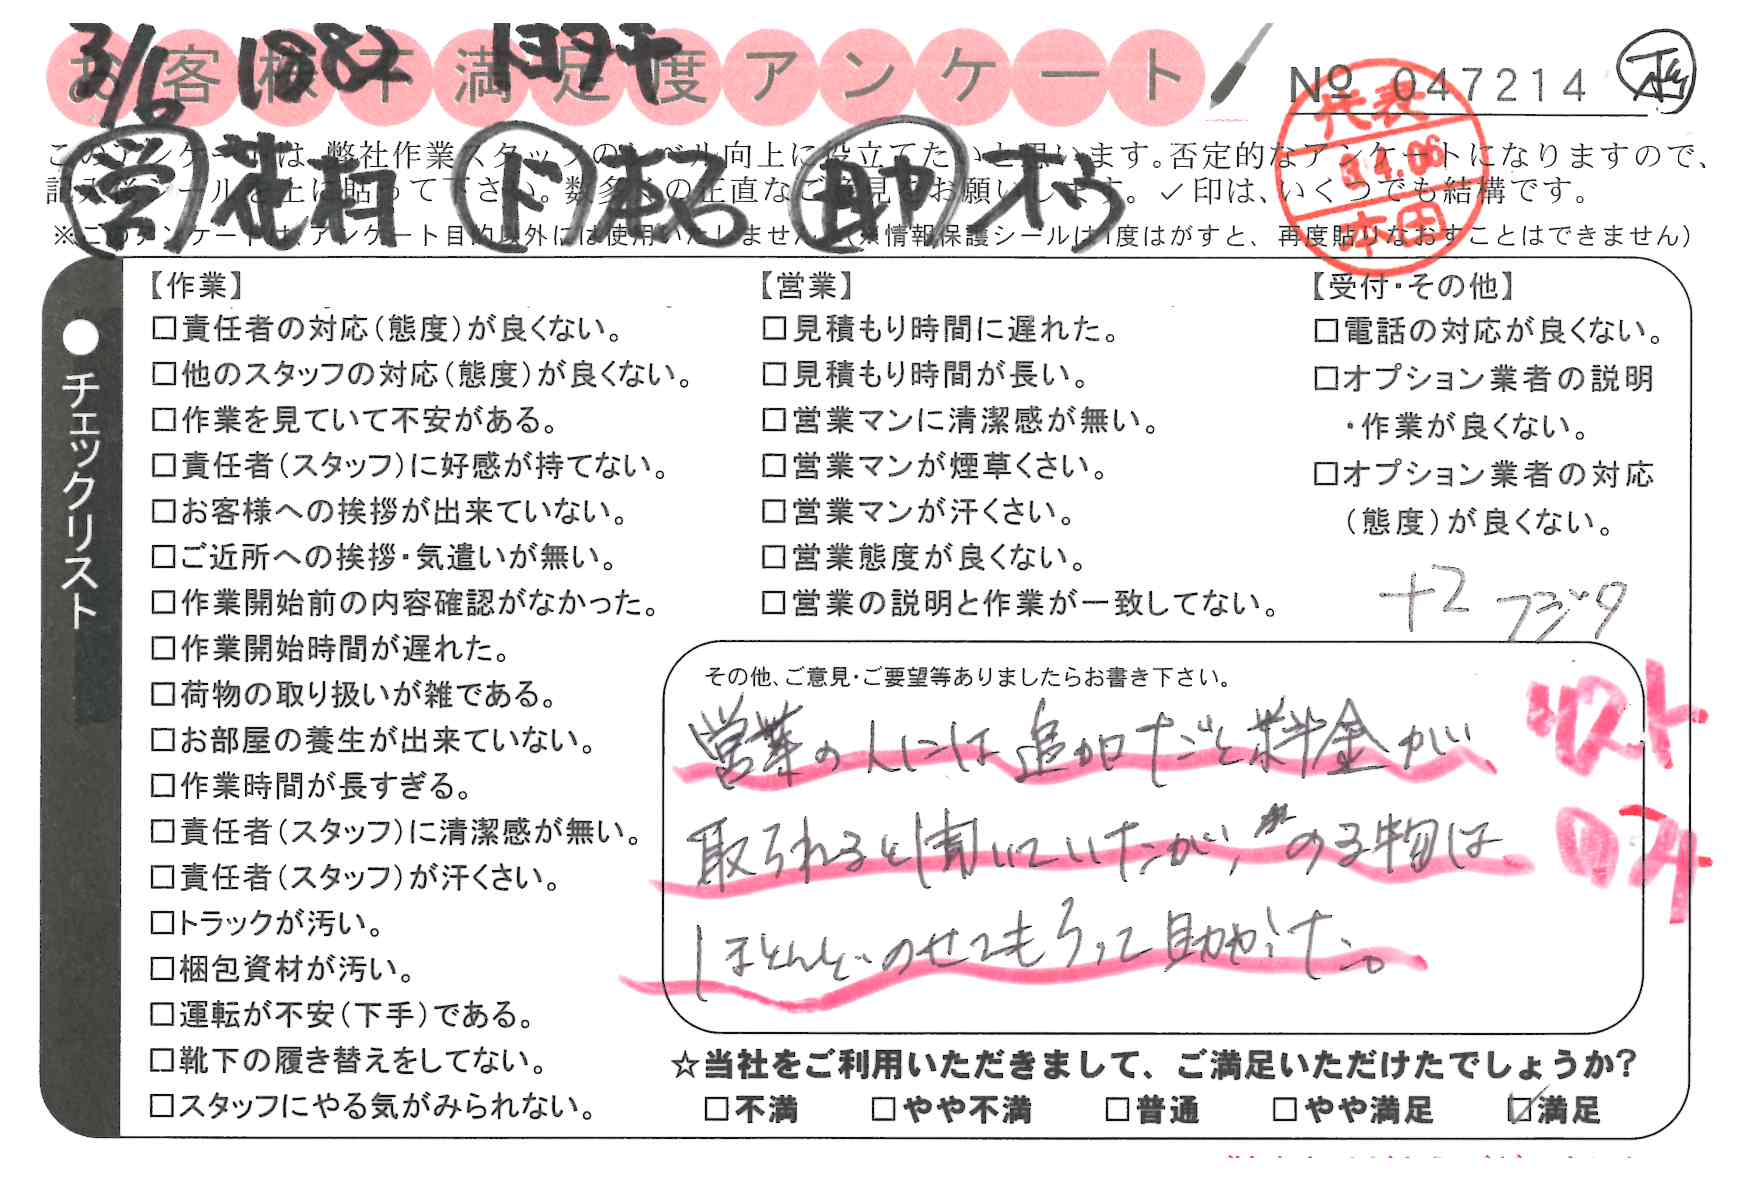 お客様不満足度アンケート
3/6 1882
№ 047214
このアンケートは、弊社作業スタッフのレベル向上に役立てたいと思います。否定的なアンケートになりますので、
記入後シールを上に貼って下さい。数多くの正直なご意見をお願いします。✓印は、いくつでも結構です。
営 花村 ド 本る 助 オウ
代表
4.06
本田
※このアンケートは、アンケート目的以外には使用いたしません。(※情報保護シールは1度はがすと、再度貼りなおすことはできません)
●チェックリスト
【作業】
□責任者の対応(態度)が良くない。
□他のスタッフの対応(態度)が良くない。
□作業を見ていて不安がある。
□責任者(スタッフ)に好感が持てない。
□お客様への挨拶が出来ていない。
□ご近所への挨拶・気遣いが無い。
□作業開始前の内容確認がなかった。
□作業開始時間が遅れた。
□荷物の取り扱いが雑である。
□お部屋の養生が出来ていない。
□作業時間が長すぎる。
□責任者(スタッフ)に清潔感が無い。
□責任者(スタッフ)が汗くさい。
□トラックが汚い。
□梱包資材が汚い。
□運転が不安(下手)である。
□靴下の履き替えをしてない。
□スタッフにやる気がみられない。
【営業】
□見積もり時間に遅れた。
□見積もり時間が長い。
□営業マンに清潔感が無い。
□営業マンが煙草くさい。
□営業マンが汗くさい。
□営業態度が良くない。
□営業の説明と作業が一致してない。
【受付・その他】
□電話の対応が良くない。
□オプション業者の説明
・作業が良くない。
□オプション業者の対応
(態度)が良くない。
+2 フジタ
その他、ご意見・ご要望等ありましたらお書き下さい。
営業の人には追加だと料金がい
取られると聞いていたが、のる物は
ほとんどのせてもらって助かった。
リスト
ロチ
☆当社をご利用いただきまして、ご満足いただけたでしょうか?
□不満 □やや不満 □普通 □やや満足 ☑満足